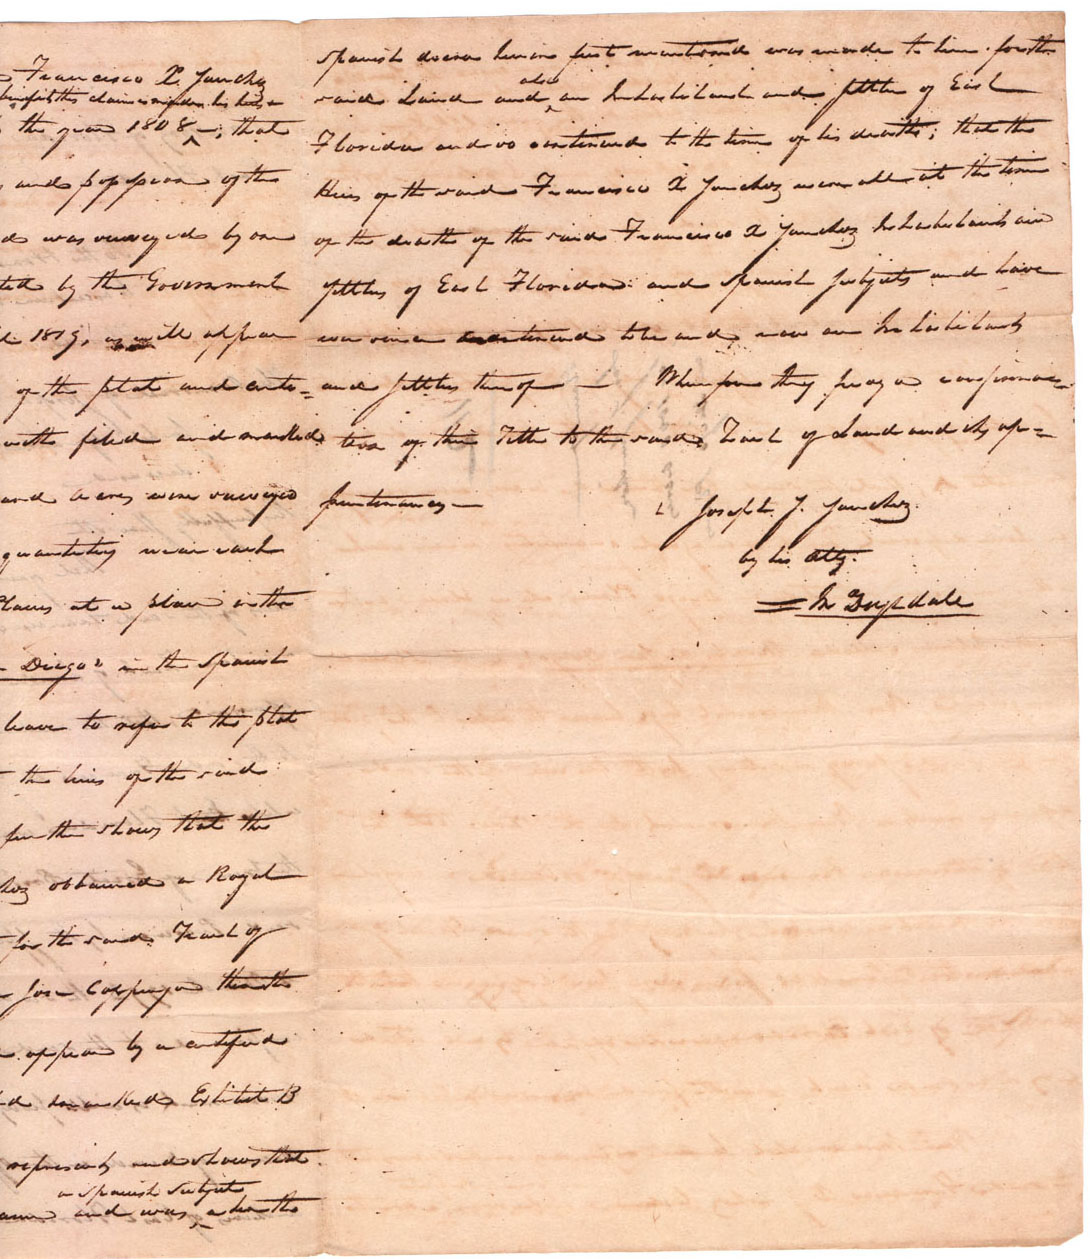 Francisco X. Sanchez
benefit this claim is made, his heirs &
the year 1808 —; that
and possession of the
was surveyed by one
by the Government
1819, as will appear
of the plat and certi=
filed and marked
and acres were surveyed
quantities near each
places at a place in the
Diego" in the Spanish
leave to refer to the plat
the lines of the said
further shows that the
obtained a Royal
for the said Tract of
Jose Coppinger then the
appear by a certified
marked Exhibit B
represents and shows that
a Spanish Subject
and was ‸ when the
Spanish decree herein first mentioned was made to him for the
also
said Land and ‸ an Inhabitant and settler of East
Florida and so continued to the time of his death; that the
Heirs of the said Francisco X Sanchez were all at the time
of the death of the said Francisco X Sanchez Inhabitants and
settlers of East Florida and Spanish subjects and have
ever since continued to be and now are Inhabitants
and settlers thereof — Wherefore they pray a confirma=
tion of their Title to the said Tract of Land and its ap=
purtenances —
Joseph S. Sanchez
by his Atty.
= Jn Drysdale